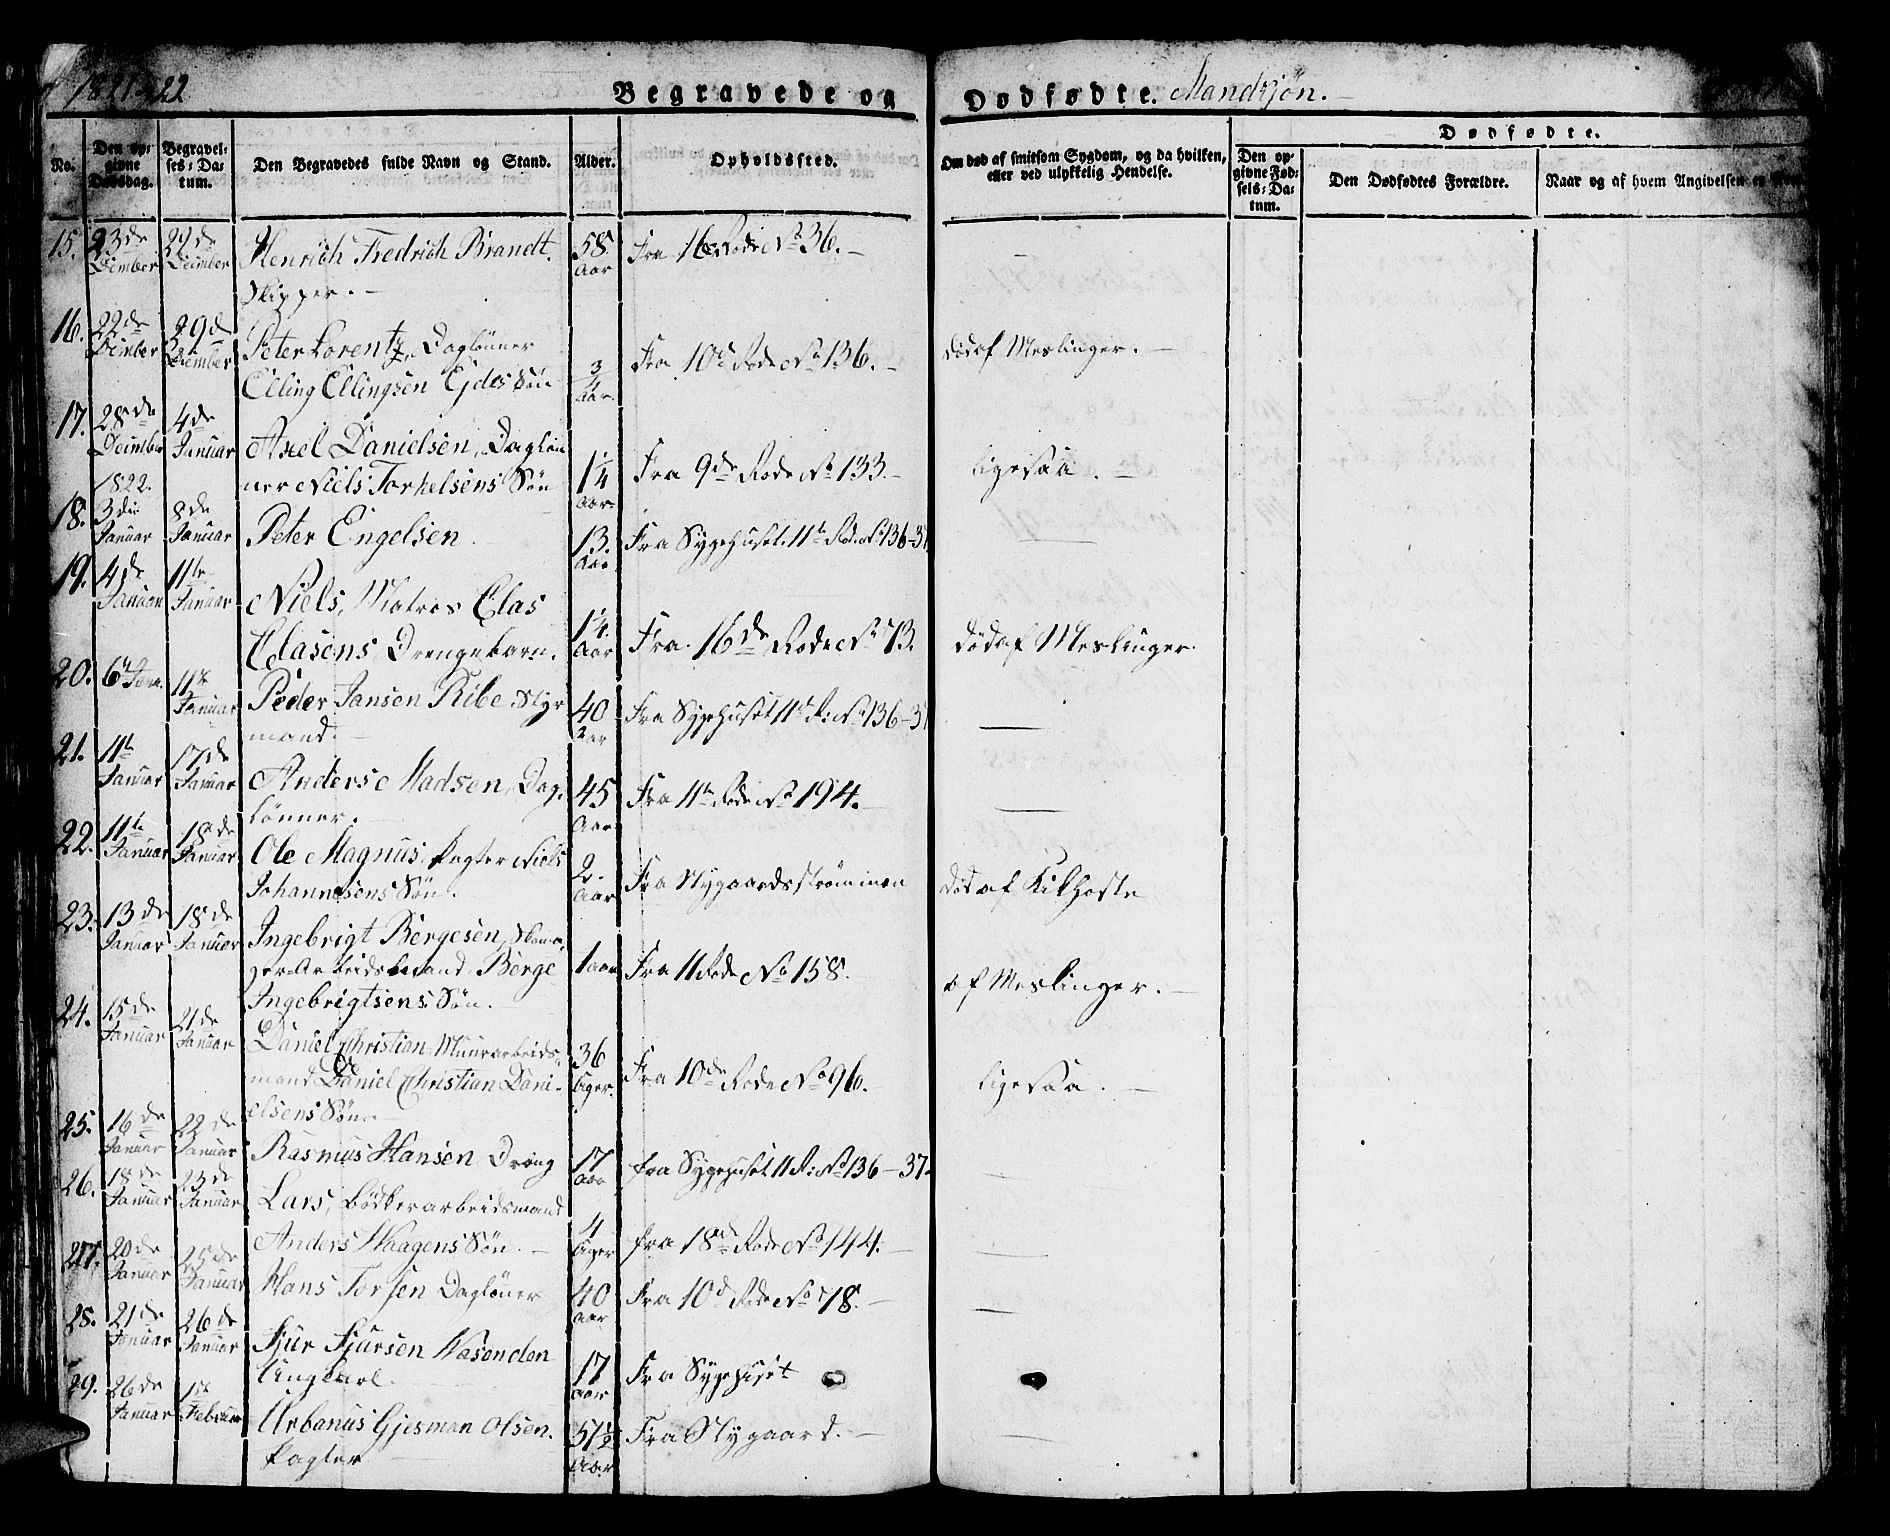 1821-22
Begravede og Dødfødte. Mandkjön.
No.
Den opgivne Dødsdag.
Begravelses-Datum.
Den Begravedes fulde Navn og Stand.
Alder.
Opholdssted.
Om død af smitsom Sygdom, og da hvilken, eller ved ulykkelig Hendelse.
Dødfødte.
Den opgivne Fødsels-Datum.
Den Dødfødtes Forældre.
Naar og af hvem Angivelsen er
15. 23de Decimber 29de Decimber Henrich Fredrich Brandt. 58 Aar Fra 16de Rode No 36. —
Skipper. —
16. 22de Decimber 29de Decimber Peter Lorentz, Daglönner 3/4 Aar Fra 10de Rode No 136. — död af Meslinger. —
Elling Ellingsen Ejdes Sön
17. 28de Decimber 4de Januar Axel Danielsen, Daglön 1 1/4 Aar Fra 9de Rode No 133. — ligesaa. —
ner Niels Torkelsens Sön
1822.
18. 3die Januar 8de Januar Peter Engelsen. 13. Aar Fra Sygehuset 11te Rode No 136-37 —
19. 4de Januar 11te Januar Niels, Matros Clas 1 1/4. Aar Fra 16de Rode No 73. död af Meslinger.
Clasens Drengebarn.
20. 6te Janu. 11te Januar Peder Jansen Ribe, Styr 40 Aar Fra Sygehuset 11te R: No 136-37 —
mand. —
21. 11te Januar 17de Januar Anders Madsen, Dag 45 Aar Fra 11te Rode No 194. —
lönner. —
22. 11te Januar 18de Januar Ole Magnus, Pagter Niels 2. Aar Fra Nygaardsströmmen död af Kikhoste
Johannesens Sön.
23. 13de Januar 18de Januar Ingebrigt Bergesen, 1 aar Fra 11 Rode No 158. af Meslinger. —
Arbeidsmand Berge
Ingebrigtsens Sön.
24. 15de Januar 21de Januar Daniel Christian, Muurarbeids- 36 Uger. Fra 10de Rode No 96. ligesaa. —
mand Daniel Christian Dani-
elsens Sön.
25. 16de Januar 22de Januar Rasmus Hansen Dreng 17 Aar fra Sygehuset 11 R: No 136-37. —
26. 18de Januar 23de Januar Lars, Bödkerarbeidsmand 4 Uger fra 18de Rode No 144. —
Anders Haagens Sön. —
27. 20de Januar 25de Januar Hans Torsen Daglönner 40 Aar Fra 10de Rode No 78. —
28. 21de Januar 26de Januar Sjur Sjursen Næsenden 17 Aar Fra Sygehuset
Ungkarl. —
29. 26de Januar 1ste Februar Urbanus Gjesman Olsen. 57 1/2 Aar Fra Nygaard. —
Pagter —